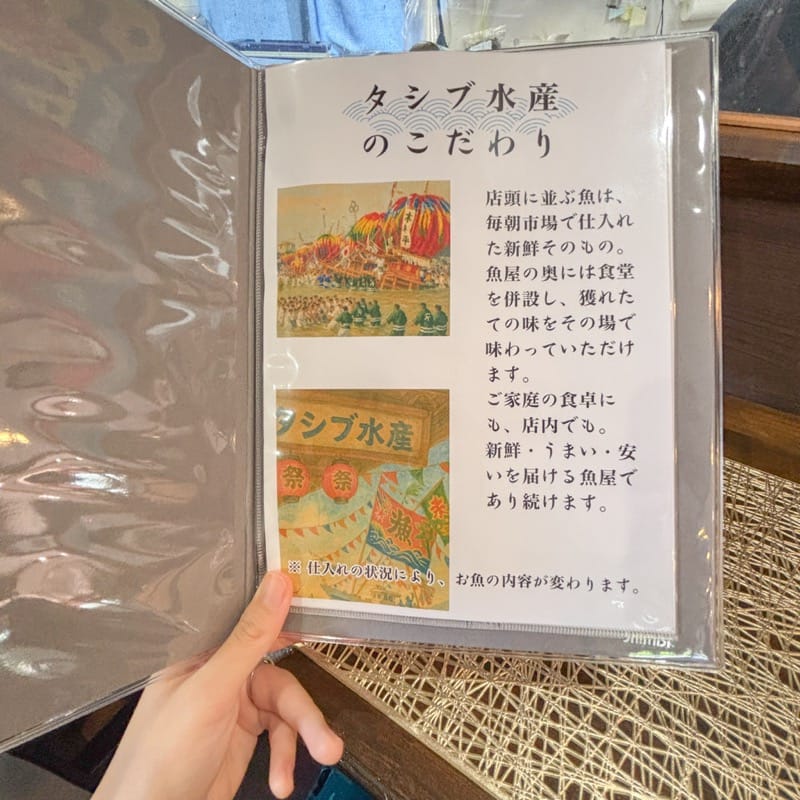 タシブ水産
のこだわり
店頭に並ぶ魚は、
毎朝市場で仕入れ
た新鮮そのもの。
魚屋の奥には食堂
を併設し、獲れた
ての味をその場で
味わっていただけ
ます。
ご家庭の食卓に
も、店内でも。
新鮮・うまい・安
いを届ける魚屋で
あり続けます。
タシブ水産
祭
※ 仕入れの状況により、お魚の内容が変わります。